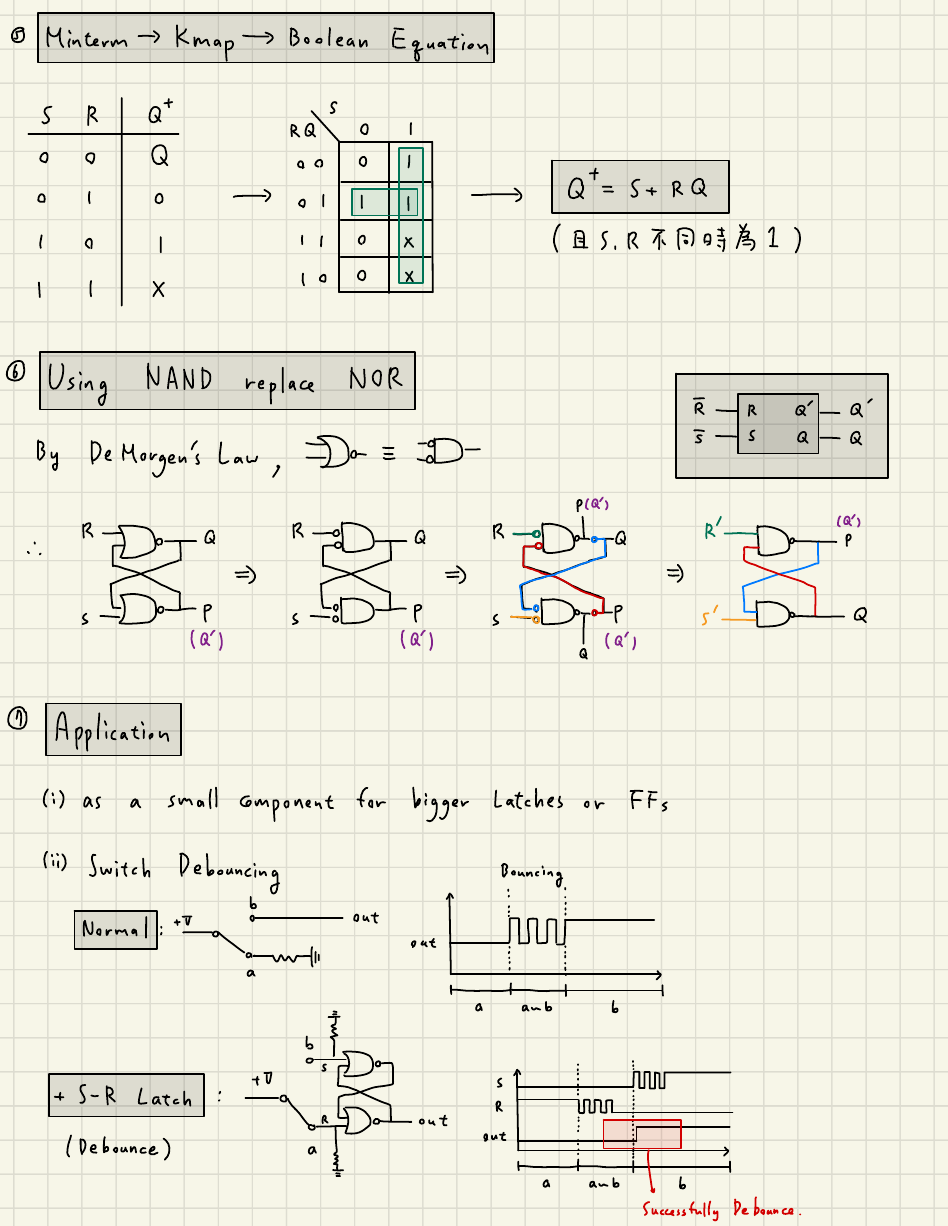 ⑤ Minterm → Kmap → Boolean Equation
S R Q⁺
0 0 Q
0 1 0
1 0 1
1 1 X
S
RQ 0 1
00 0 1
01 1 1
11 0 x
10 0 x
Q⁺ = S + RQ
(且 S,R 不同時為 1)
⑥ Using NAND replace NOR
R̅ R Q' Q'
S̅ S Q Q
By DeMorgen's Law, ≡
∴
R Q
S P
(Q')
⇒
R Q
S P
(Q')
⇒
P(Q')
R Q
S P
Q (Q')
⇒
R' (Q')
P
S' Q
⑦ Application
(i) as a small component for bigger Latches or FFs
(ii) Switch Debouncing
Normal :
+V
b out
a
Bouncing
out
a a~b b
+ S-R Latch :
(Debounce)
+V
b S
a R out
S
R
out
a a~b b
Successfully Debounce.